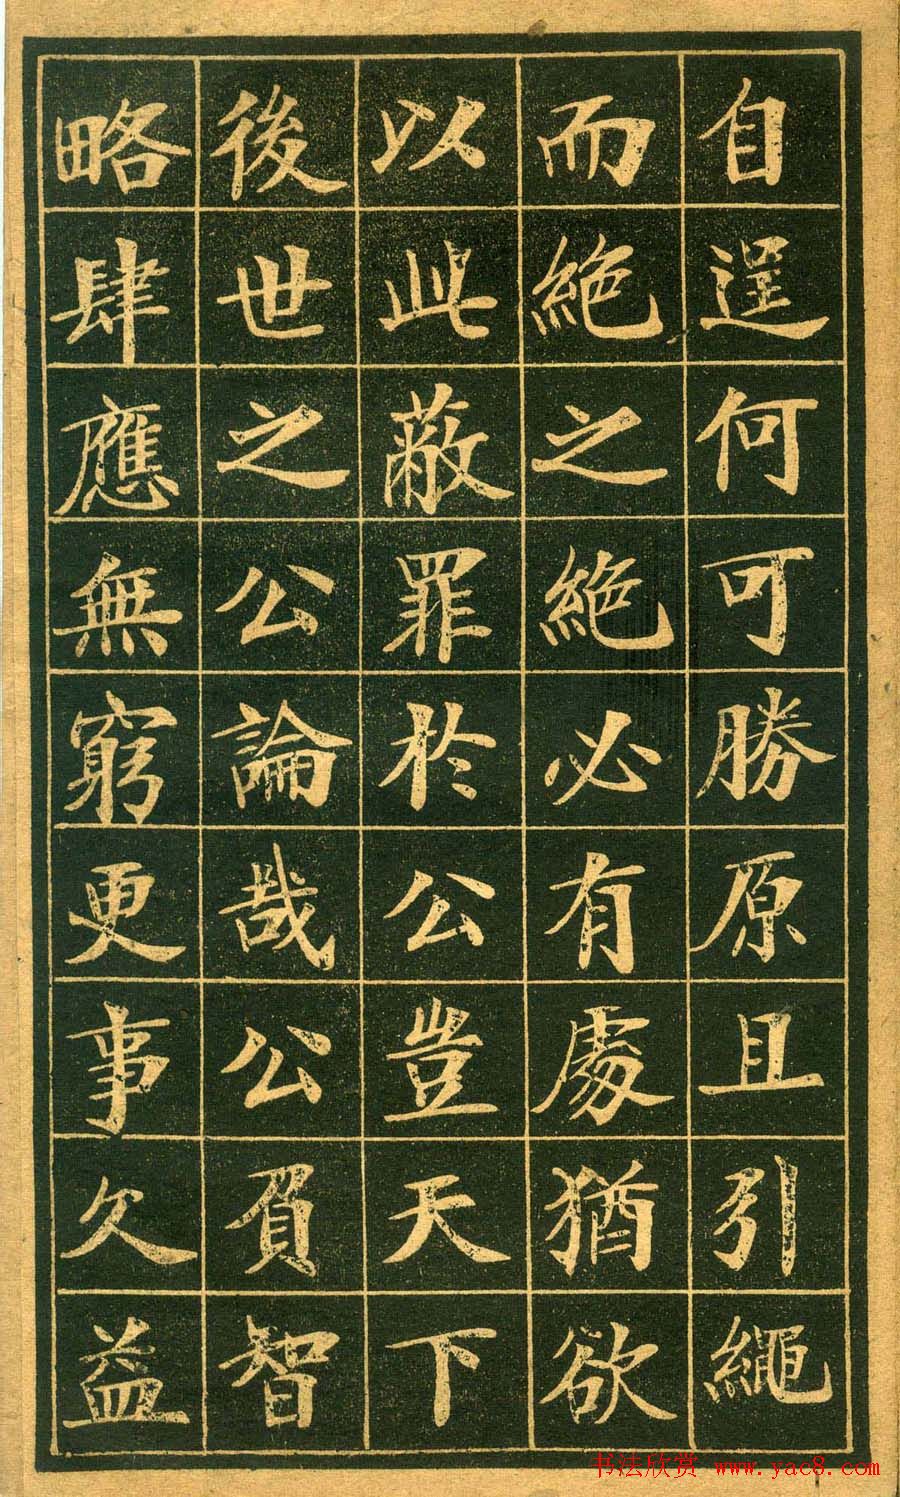 自逞何可勝原且引繩
而絶之絶必有處猶欲
以此蔽罪於公豈天下
後世之公論哉公負智
略肆應無窮更事久益
书法欣赏 www.yac8.com